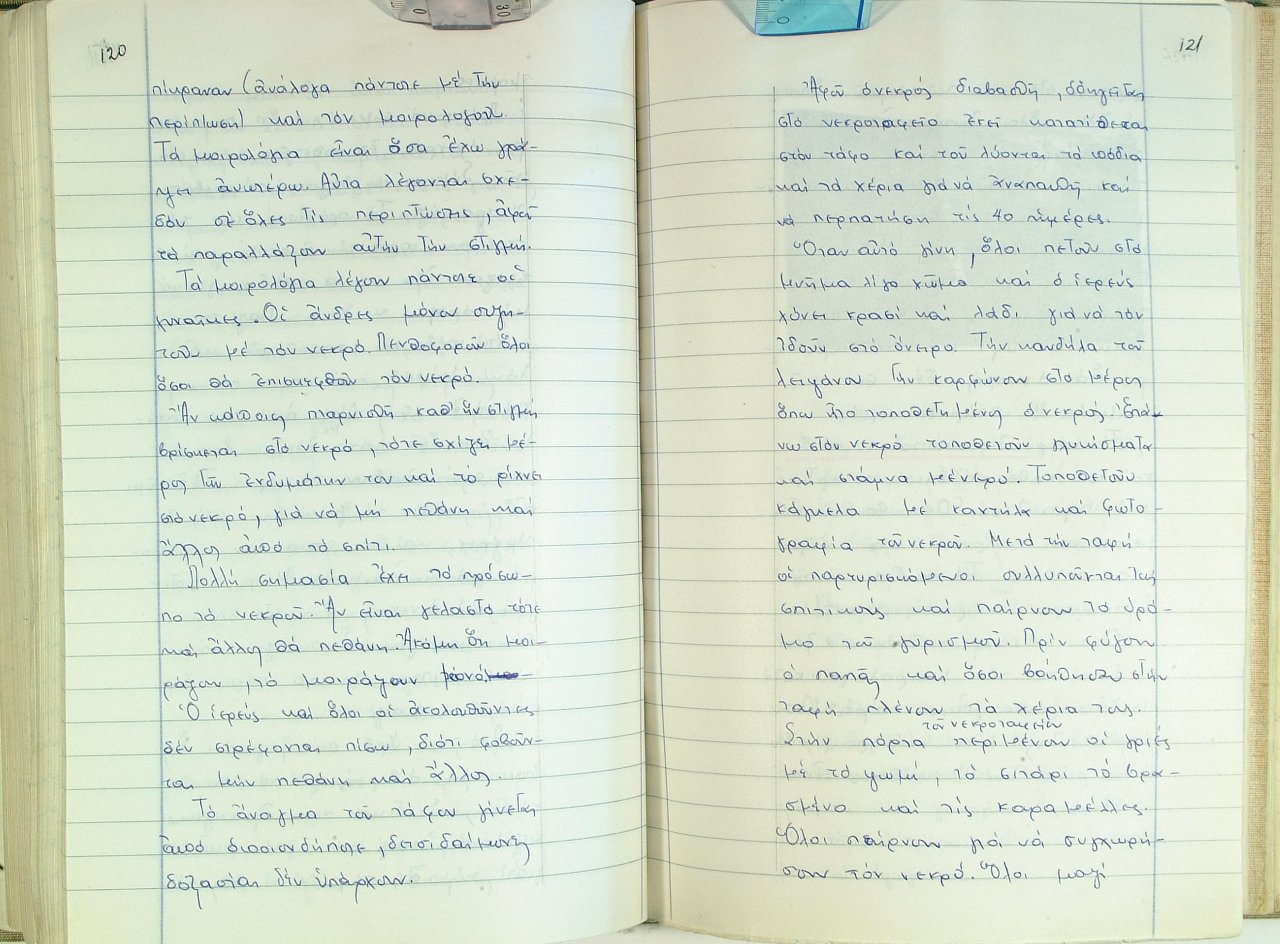 120
πίκραναν (ἀνάλογα πάντοτε μέ τήν
περίπτωση) καί τόν μοιρολογοῦν.
Τά μοιρολόγια εἶναι ὅσα ἔχω γρά-
ψει ἀνωτέρω. Αὐτα λέγονται σχε-
δόν σέ ὅλες τίς περιπτώσεις, ἀφοῦ
τά παραλλάζουν αὐτήν τήν στιγμή.
Τά μοιρολόγια λέγουν πάντοτε οἱ
γυναῖκες. Οἱ ἄνδρες μόνον συζη-
τοῦν μέ τόν νεκρό. Πενθοφοροῦν ὅλοι
ὅσοι θά ἐπισκεφθοῦν τόν νεκρό.
Ἄν κάποιος πταρνισθῆ καθ' ἥν στιγμή
βρίσκεται στό νεκρό, τότε σχίζει μέ-
ρος τῶν ἐνδυμάτων του καί τό ρίχνει
στό νεκρό, γιά νά μή πεθάνη καί
ἄλλος ἀπό τό σπίτι.
Πολλή σημασία ἔχει τό πρόσω-
πο τό νεκροῦ. Ἄν εἶναι γελαστό τότε
καί ἄλλος θά πεθάνη. Ἀκόμη ὅτι μοι-
ράζουν, τό μοιράζουν μονό.
Ὁ ἱερεύς καί ὅλοι οἱ ἀκολουθοῦντες
δέν στρέφονται πίσω, διότι φοβοῦν-
ται μήν πεθάνη καί ἄλλος.
Τό ἄνοιγμα τοῦ τάφου γίνεται
ἀπό διοσιονδήποτε, δεισιδαίμονες
δοξασίαι δέν ὑπάρχουν.
121
Ἀφοῦ ὁ νεκρός διαβασθῆ, ὁδηγεῖται
στό νεκροταφεῖο ἐκεῖ κατατίθεται
στόν τάφο καί τοῦ λύονται τά πόδια
καί τά χέρια γιά νά ἀναπαυθῆ καί
νά περπατήση τίς 40 ἡμέρες.
Ὅταν αὐτό γίνη, ὅλοι πετοῦν στό
μνῆμα λίγο χῶμα καί ὁ ἱερεύς
χύνει κρασί καί λάδι γιά νά τόν
ἰδοῦν στό ὄνειρο. Τήν κανδήλα τοῦ
λειψάνου τήν καρφώνουν στό μέρος
ὅπου ἦτο τοποθετημένος ὁ νεκρός. Ἐπά-
νω στόν νεκρό τοποθετοῦν γλυκίσματα
καί στάμνα μέ νερό. Τοποθετοῦν
κάγκελα μέ καντήλι καί φωτο-
γραφία τοῦ νεκροῦ. Μετά τήν ταφή
οἱ παρευρισκόμενοι συλλυποῦνται τούς
σπιτικούς καί παίρνουν τό δρό-
μο τοῦ γυρισμοῦ. Πρίν φύγουν
ὁ παπάς καί ὅσοι βοήθησαν στήν
ταφή πλένουν τά χέρια τους.
τοῦ νεκροταφείου
Στήν πόρτα περιμένουν οἱ γριές
μέ τό ψωμί, τό σιτάρι τό βρα-
σμένο καί τίς καραμέλλες.
Ὅλοι παίρνουν γιά νά συγχωρή-
σουν τόν νεκρό. Ὅλοι μαζί